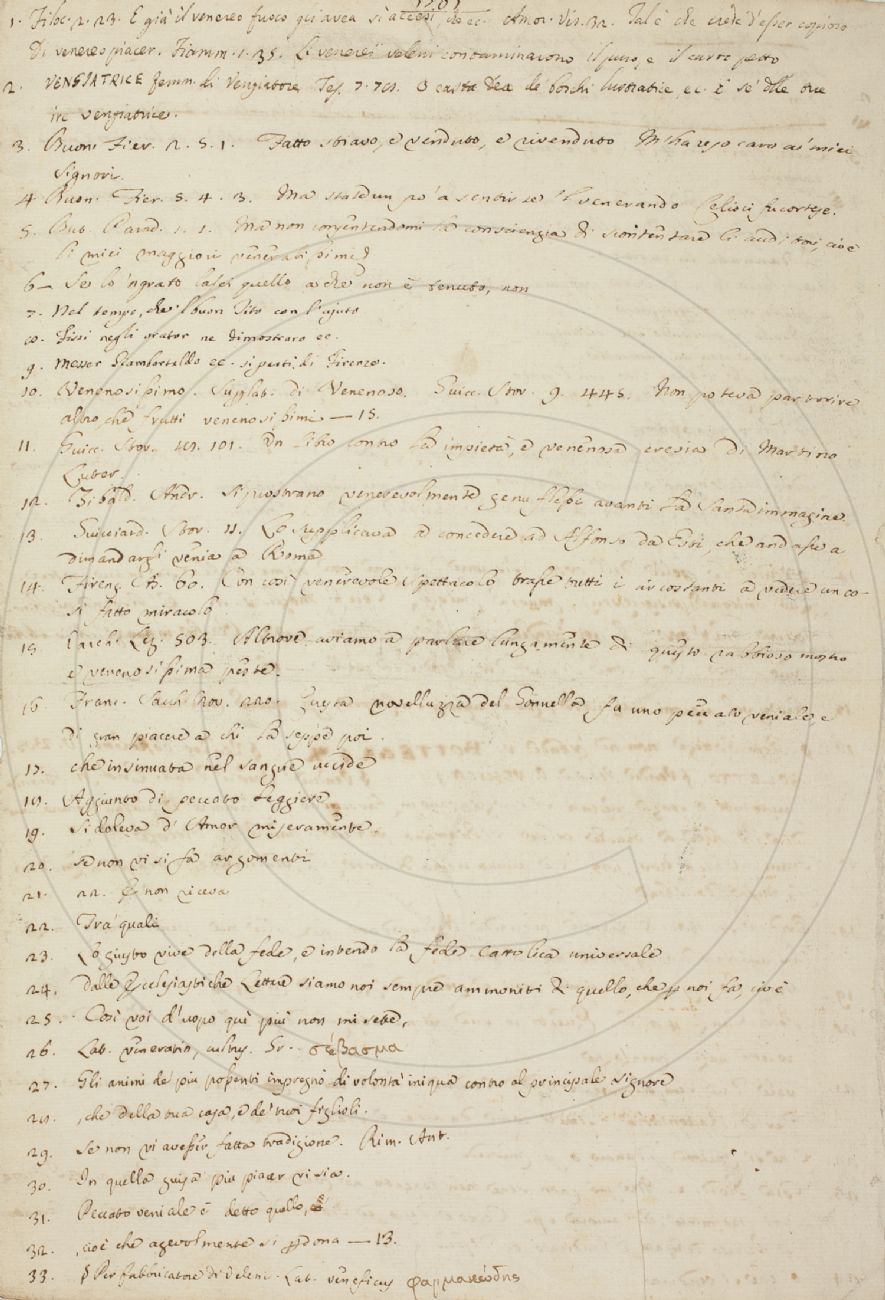 1. Filoc. 2. 23. E già il venereo fuoco gli avea sì accesi, ec. Amor. Vis. 32. Tal è che crede d'esser copioso
Di venereo piacer. Fiamm. 1. 35. Li venerei veleni contaminarono il puro, e il casto petto
2. VENGIATRICE femm. di Vengiatore Tes. 7. 79. O casta Dea de' boschi lustratrice, ec. E se' delle tue
ire vengiatrice.
3. Buon. Fier. 2. 5. 1. Fatto stiavo, e venduto, e rivenduto M'ha reso caro a' miei
Signori.
4 Buon. Fier. 5. 4. 3. Ma state un po' a sentir se 'l venerando
5. But. Parad. 1. 1. Ma non consentendomi la conscienzia di scontentare li auditori, cioè
li miei maggiori venerabissimi
6 Se lo 'ngrato lasci quello a che non è tenuto, non
7. Nel tempo, che 'l buon Tito con l'ajuto
8. Fissi negli orator ne dimostraro ec.
9. Messer ec. si partì di Firenze.
10. Venenosissimo. Superlat. di Venenoso. Guicc. Stor. 9. 445. Non poteva partorire
altro, che frutti venenosissimi — 15.
11. Guicc. Stor. 101. Un libro contro la impietà, e venenosa eresia di Martino
Luter.
12. Zibald. Andr. Si prostrano venerevolmente genuflessi avanti la Santa immagine.
13. Guicciard. Stor. 11. Lo supplicava a concedere ad Alfonso da Esti, che andasse a
dimandargli venia a Roma
14. Firenz. 60. Con così venerevole spettacolo trasse tutti i circostanti a vedere un co-
sì fatto miracolo.
15. Varch. Lez. 503. Altrove aviamo a parlare lungamente di questo rabbioso mostro
e venenosissima peste.
16 Franc. Sacch. Nov. 220. Questa novelluzza del Gonnella fu uno peccato veniale, e
di gran piacere a chi la seppe poi.
17. che insinuata nel sangue uccide
18. Aggiunto di peccato leggiere
19. Si doleva d'Amor miseramente.
20. se non vi si fa argomenti
21. 22. non riceva
22. Tra' quali
23. Lo giusto vive della fede, e intendo la fede Cattolica universale
24. Dalle Ecclesiastiche Letture siamo noi sempre ammoniti di quello, che p noi fa, cioè
25. Così voi d'uopo qui più non mi sete,
26. Lat. veneratio, cultus. Gr. σέβασμα
27. Gli animi de' più possenti impregnò di volontà iniqua contro al principale Signore
28. , che della tua casa, e de' tuoi figlioli.
29. Se non vi avesser fatta tradigione. Rim. Ant.
30. In quella guisa più piacer vi sia.
31. Peccato veniale è detto quello,
32. , cioè che agevolmente si pdona — 13.
33. § Per fabbricatore di veleni. Lat. veneficus φαρμακώδης